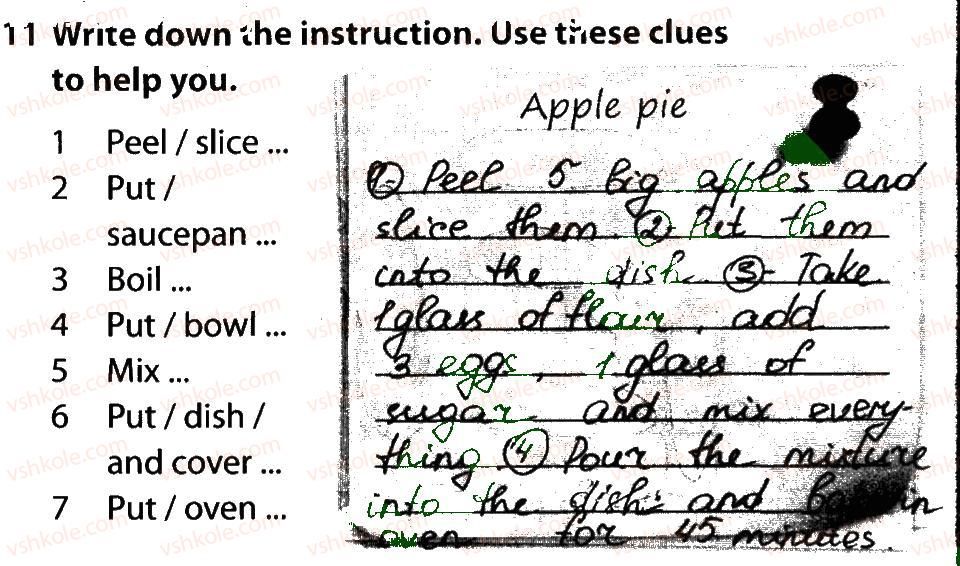 11 Write down the instruction. Use these clues
to help you.
1 Peel / slice ...
2 Put /
saucepan ...
3 Boil ...
4 Put / bowl ...
5 Mix ...
6 Put / dish /
and cover ...
7 Put / oven ...
Apple pie
1. Peel 5 big apples and
slice them. 2 Put them
into the dish. 3 Take
1 glass of flour, add
3 eggs, 1 glass of
sugar and mix every-
thing 4 Pour the mixture
into the dish and in
oven for 45 minutes.
vshkole.com